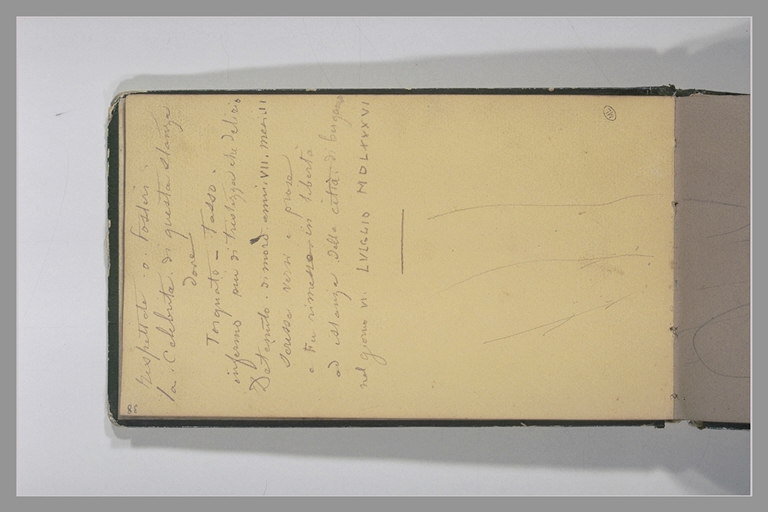 Rispettate o Posteri
la. Celebrità di questa stanza
dove
Torquato - Tasso.
infermo piu di tristezza che delirio
Detenuto. dimorò anni. VII. mesi. II
Scrisse versi e prose
e Fu rimesso in libertà
ad istanza della città. di bergamo
nel giorno VI. LVLGLIO MDLXXXVI